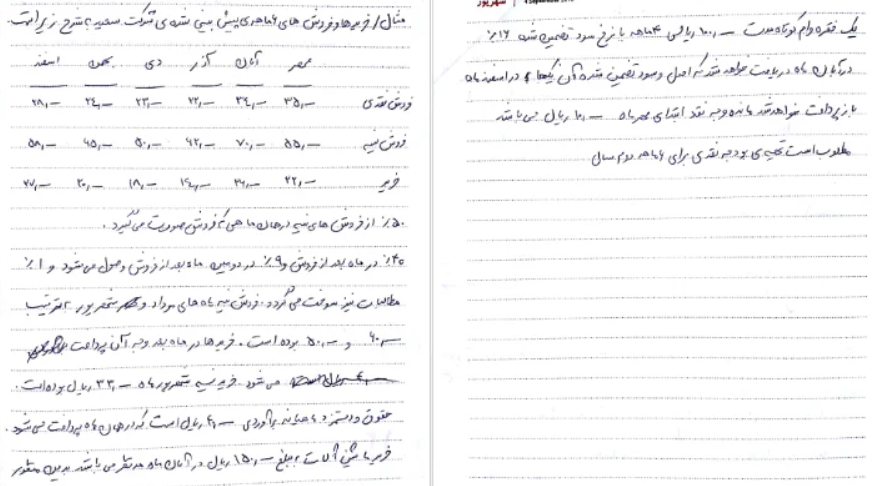 مثال / خریدها و فروش های ۶ ماهه ی پیش بینی شده ی شرکت سعید بشرح زیر است
مهر آبان آذر دی بهمن اسفند
فروش نقدی ۳۵,— ۳۴,— ۲۲,— ۲۳,— ۲۴,— ۲۸,—
فروش نسیه ۵۵,— ۷۰,— ۴۲,— ۵۰,— ۴۵,— ۵۸,—
خرید ۲۲,— ۳۶,— ۱۴,— ۱۸,— ۲۰,— ۲۷,—
۵۰٪ از فروش های نسیه در همان ماهی که فروش صورت می گیرد.
۴۰٪ در ماه بعد از فروش و ۹٪ در دومین ماه بعد از فروش وصول می شود و ۱٪
مطالبات نیز سوخت می گردد. فروش نسیه ماه های مرداد و شهریور بترتیب
۶۰,— و ۵۰,— بوده است. خریدها در ماه بعد وجه آن پرداخت
می شود. خرید نسیه شهریور ماه ۳۳,— ریال بوده است.
حقوق و دستمزد ماهیانه برآوردی ۴,— ریال است که در همان ماه پرداخت می شود.
خرید ماشین آلات بمبلغ ۱۵۰,— ریال در آبان ماه مد نظر می باشد بدین منظور
شهریور
یک فقره وام کوتاه مدت ۱۰۰,— ریالی ۴ ماهه با نرخ سود تضمین شده ۱۶٪
در آبان ماه دریافت خواهد شد که اصل و سود تضمین شده آن یکجا در اسفند ماه
باز پرداخت خواهد شد مانده وجه نقد ابتدای مهر ماه ۱۰,— ریال می باشد
مطلوب است تهیه ی بودجه نقدی برای ۶ ماهه دوم سال